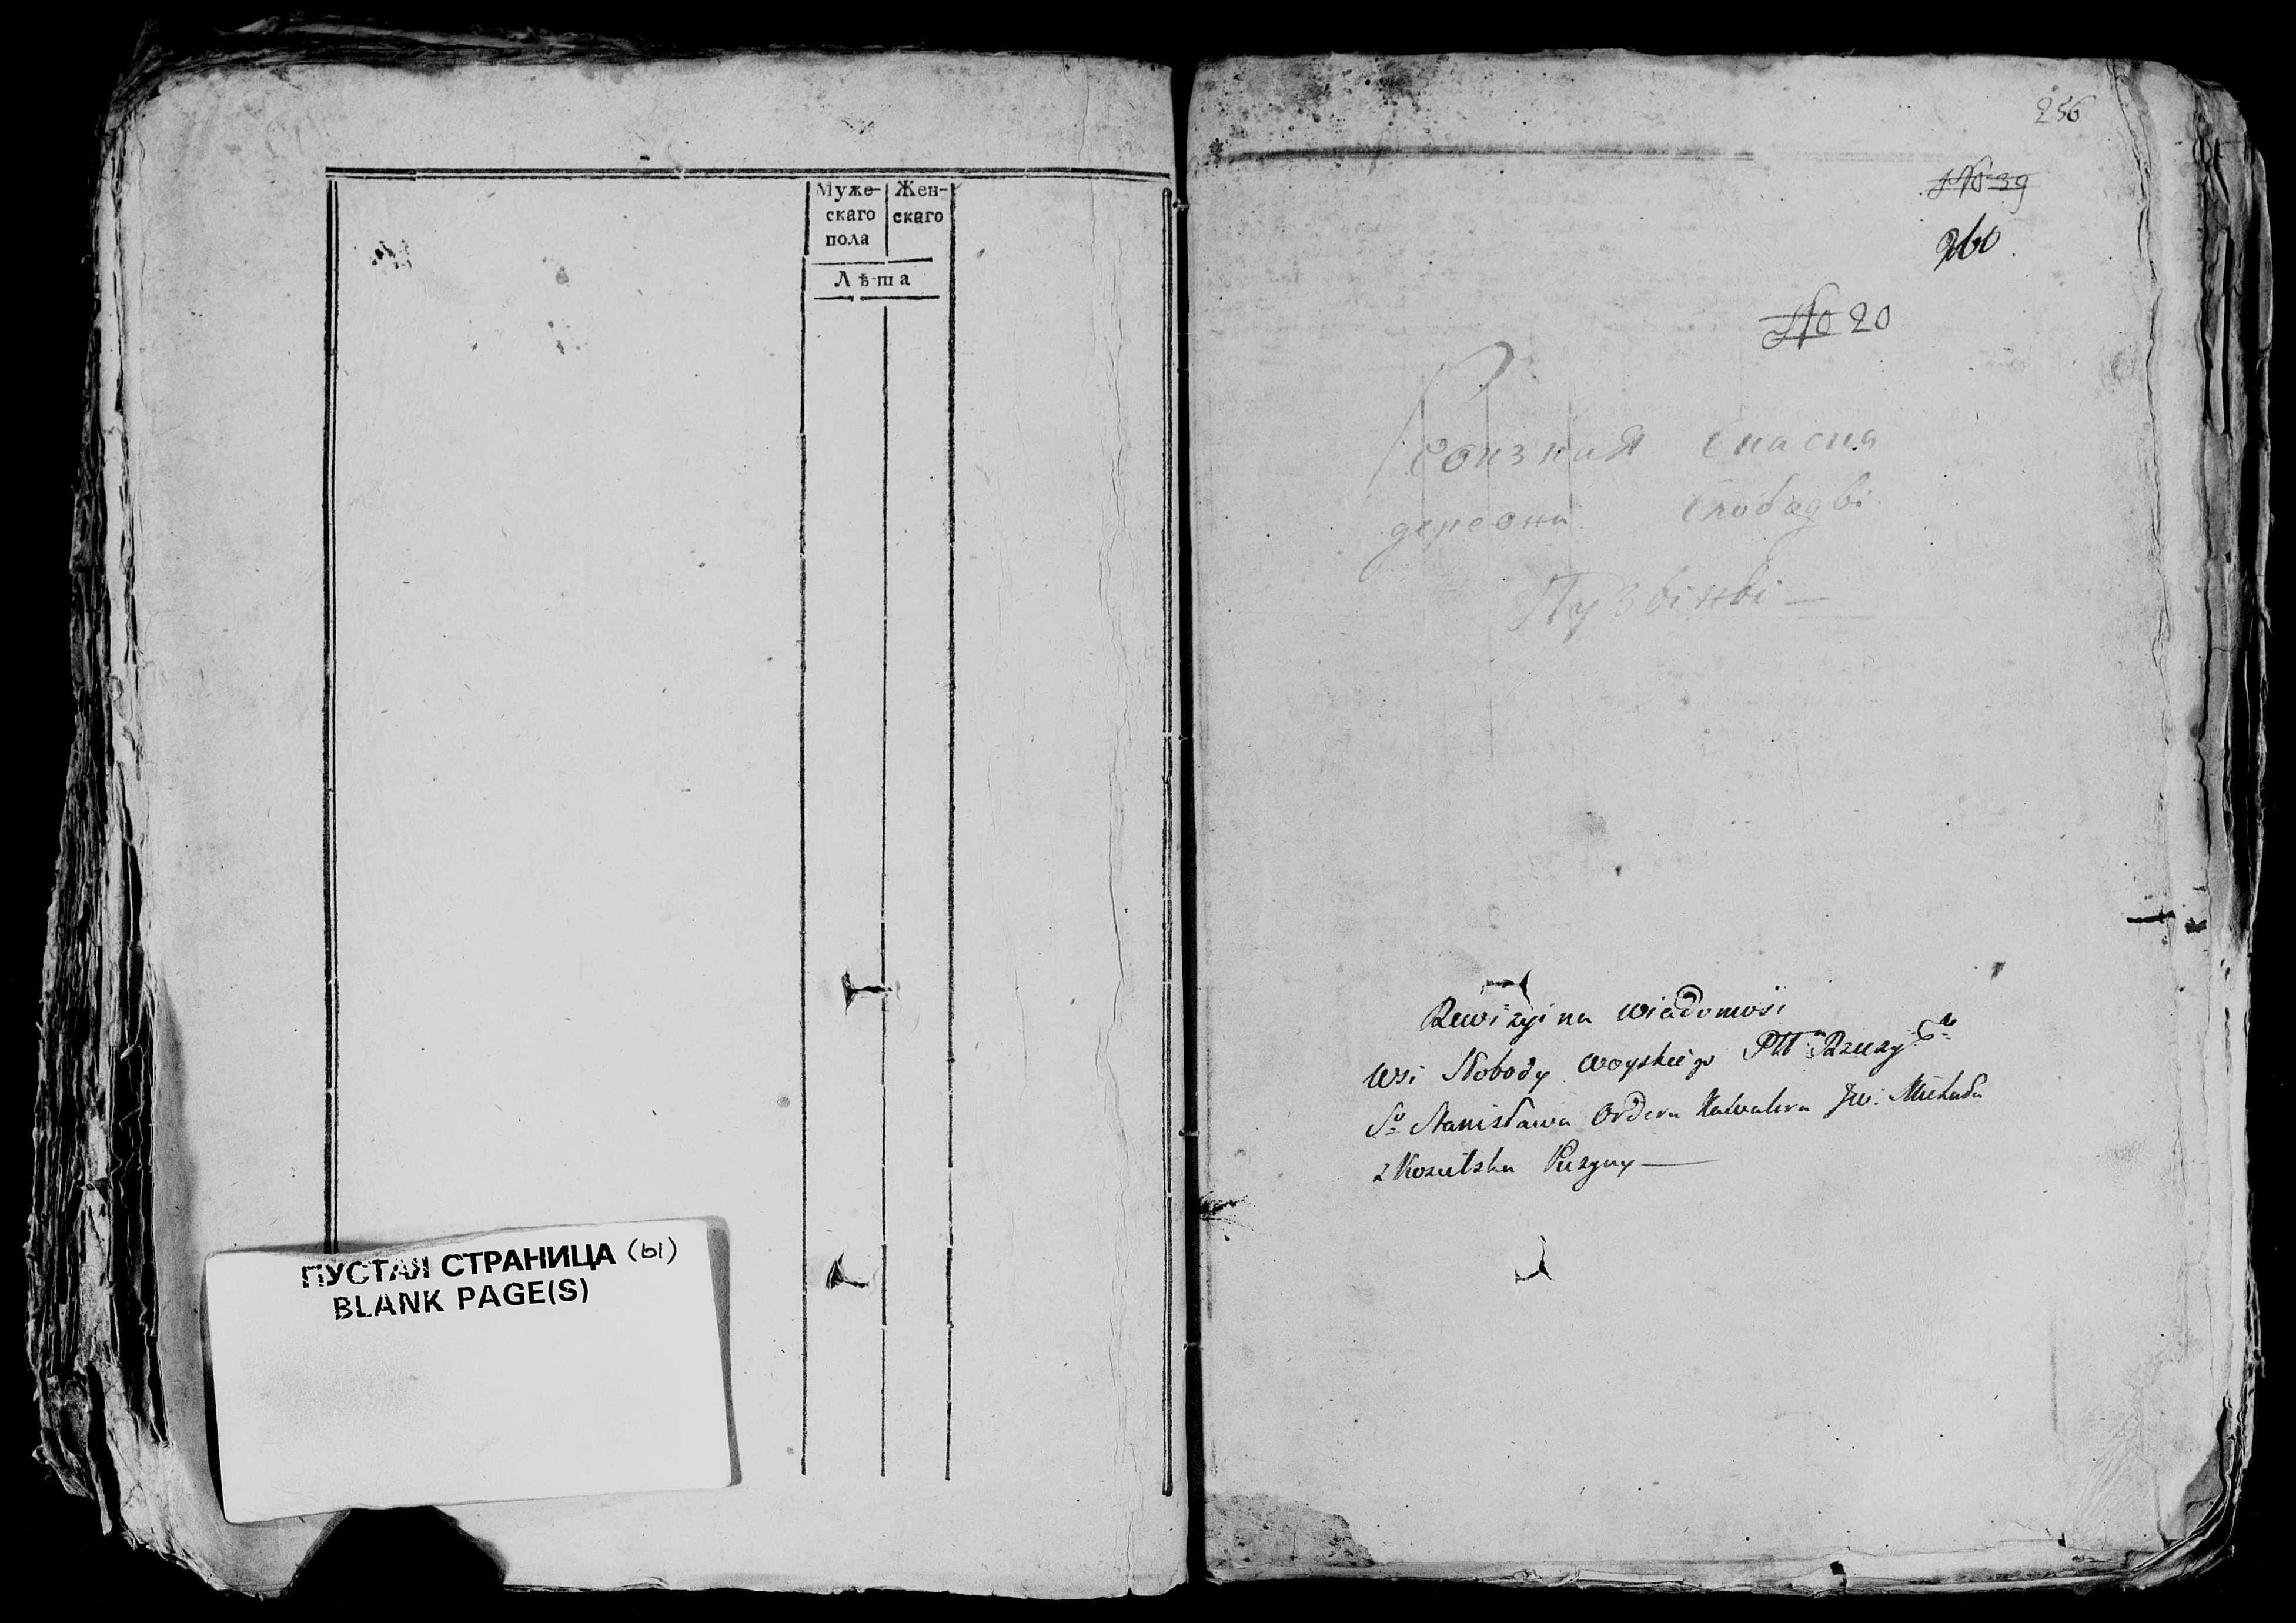 Муже-
скаго
пола
Жен-
скаго
Лѣта
ПУСТАЯ СТРАНИЦА (ы)
BLANK PAGE(S)
256
No 39
260
No 20
деревни Слободы
Пузыны
Rewizyina Wiadomosi
Wsi Słobody Woyskiego Ptt
So Stanisława Ordera Kawalera JW. Michała
z Kozielska Puzyny